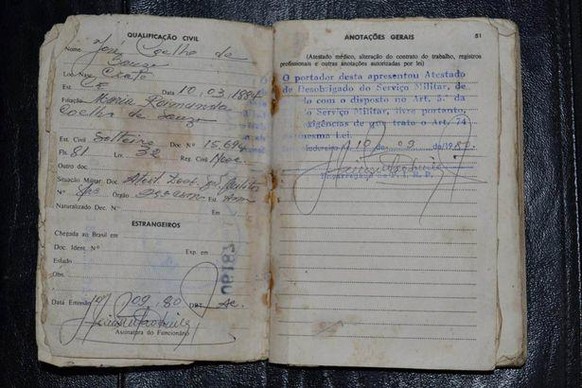 QUALIFICAÇÃO CIVIL
Nome José Coelho de
Souza
Loc. Nasc. Crato
Est. Ce Data 10.03.1884
Filiação Maria Raimunda
Coelho de Souza
Est. Civil Solteiro Doc Nº 15.694
Fls. 81 Liv. 32 Reg. Civil
Outro doc.
Situação Militar: Doc.
Nº Órgão Est.
Naturalizado Dec. Nº Em
ESTRANGEIROS
Chegada ao Brasil em
Doc. Ident. Nº Exp. em
Estado
Obs.
Data Emissão 10/ 09.80 DRT Ac.
Assinatura do Funcionário
06187
81
ANOTAÇÕES GERAIS
(Atestado médico, alteração do contrato de trabalho, registros
profissionais e outras anotações autorizadas por lei)
O portador desta apresentou Atestado
de Desobrigado do Serviço Militar, de
do com o disposto no Art. da
do Serviço Militar, livre portanto,
igências de que trata o Art. 74
mesma Lei.
10 09 de 198